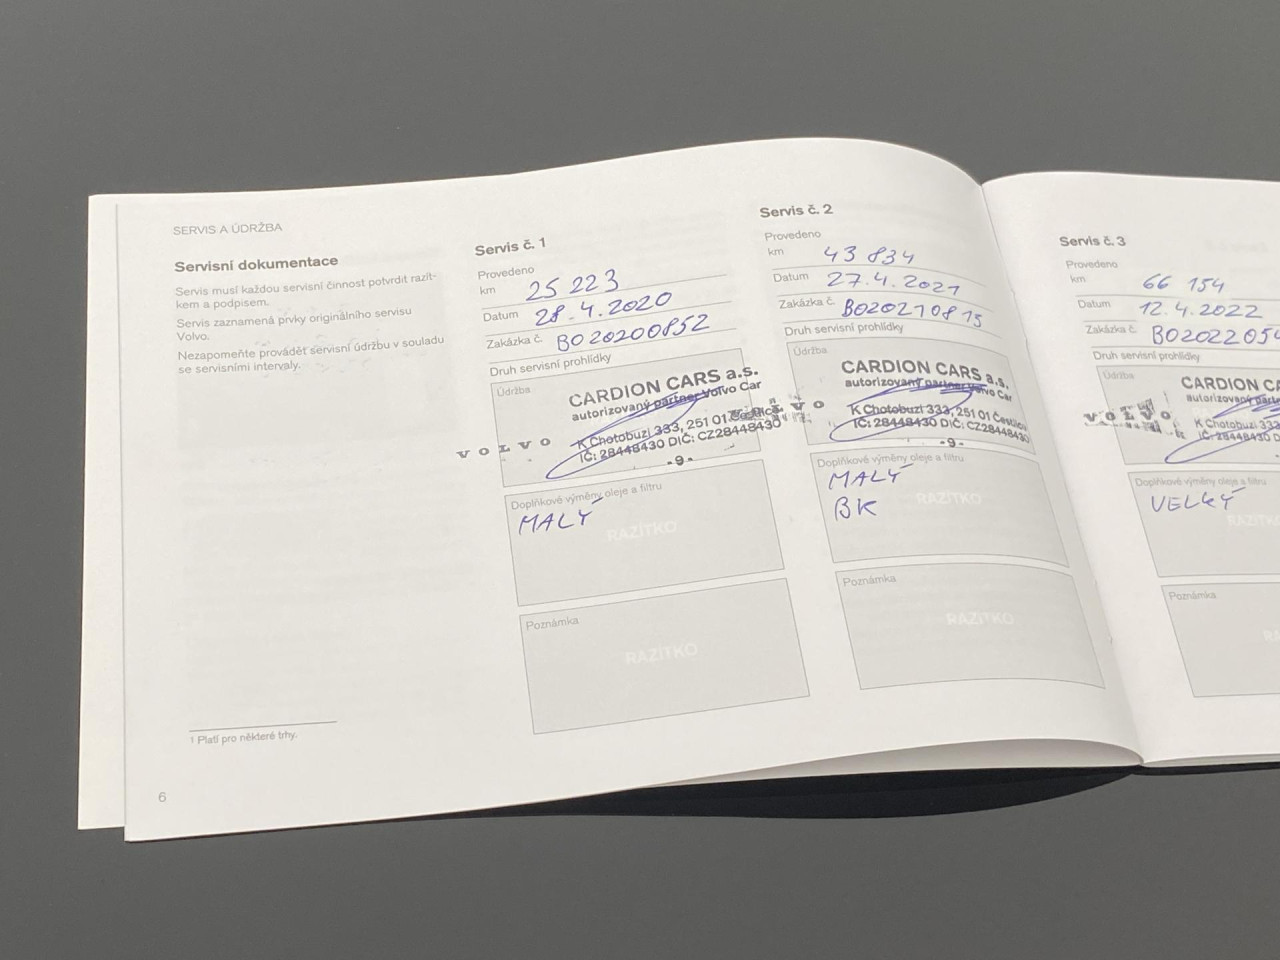 SERVIS A ÚDRŽBA
Servisní dokumentace
Servis musí každou servisní činnost potvrdit razít-
kem a podpisem.
Servis zaznamená prvky originálního servisu
Volvo.
Nezapomeňte provádět servisní údržbu v souladu
se servisními intervaly.
1 Platí pro některé trhy.
6
Servis č. 1
Provedeno
km 25 223
Datum 28.4.2020
Zakázka č. BO20200852
Druh servisní prohlídky
Údržba
CARDION CARS a.s.
autorizovaný partner Volvo Car
VOLVO
K Chotobuzi 333, 251 01
IČ: 28448430 DIČ: CZ28448430
-9-
Doplňkové výměny oleje a filtru
MALÝ
RAZÍTKO
Poznámka
RAZÍTKO
Servis č. 2
Provedeno
km 43 834
Datum 27.4.2021
Zakázka č. BO20210815
Druh servisní prohlídky
Údržba
CARDION CARS a.s.
autorizovaný partner Volvo Car
VOLVO
K Chotobuzi 333, 251 01
IČ: 28448430 DIČ: CZ28448430
-9-
Doplňkové výměny oleje a filtru
MALÝ
BK
RAZÍTKO
Poznámka
RAZÍTKO
Servis č. 3
Provedeno
km 66 154
Datum 12.4.2022
Zakázka č. BO2022054
Druh servisní prohlídky
Údržba
CARDION CA
autorizovaný part
VOLVO
K Chotobuzi 333
IČ: 28448430 D
Doplňkové výměny oleje a filtru
VELKÝ
RAZÍTK
Poznámka
RA